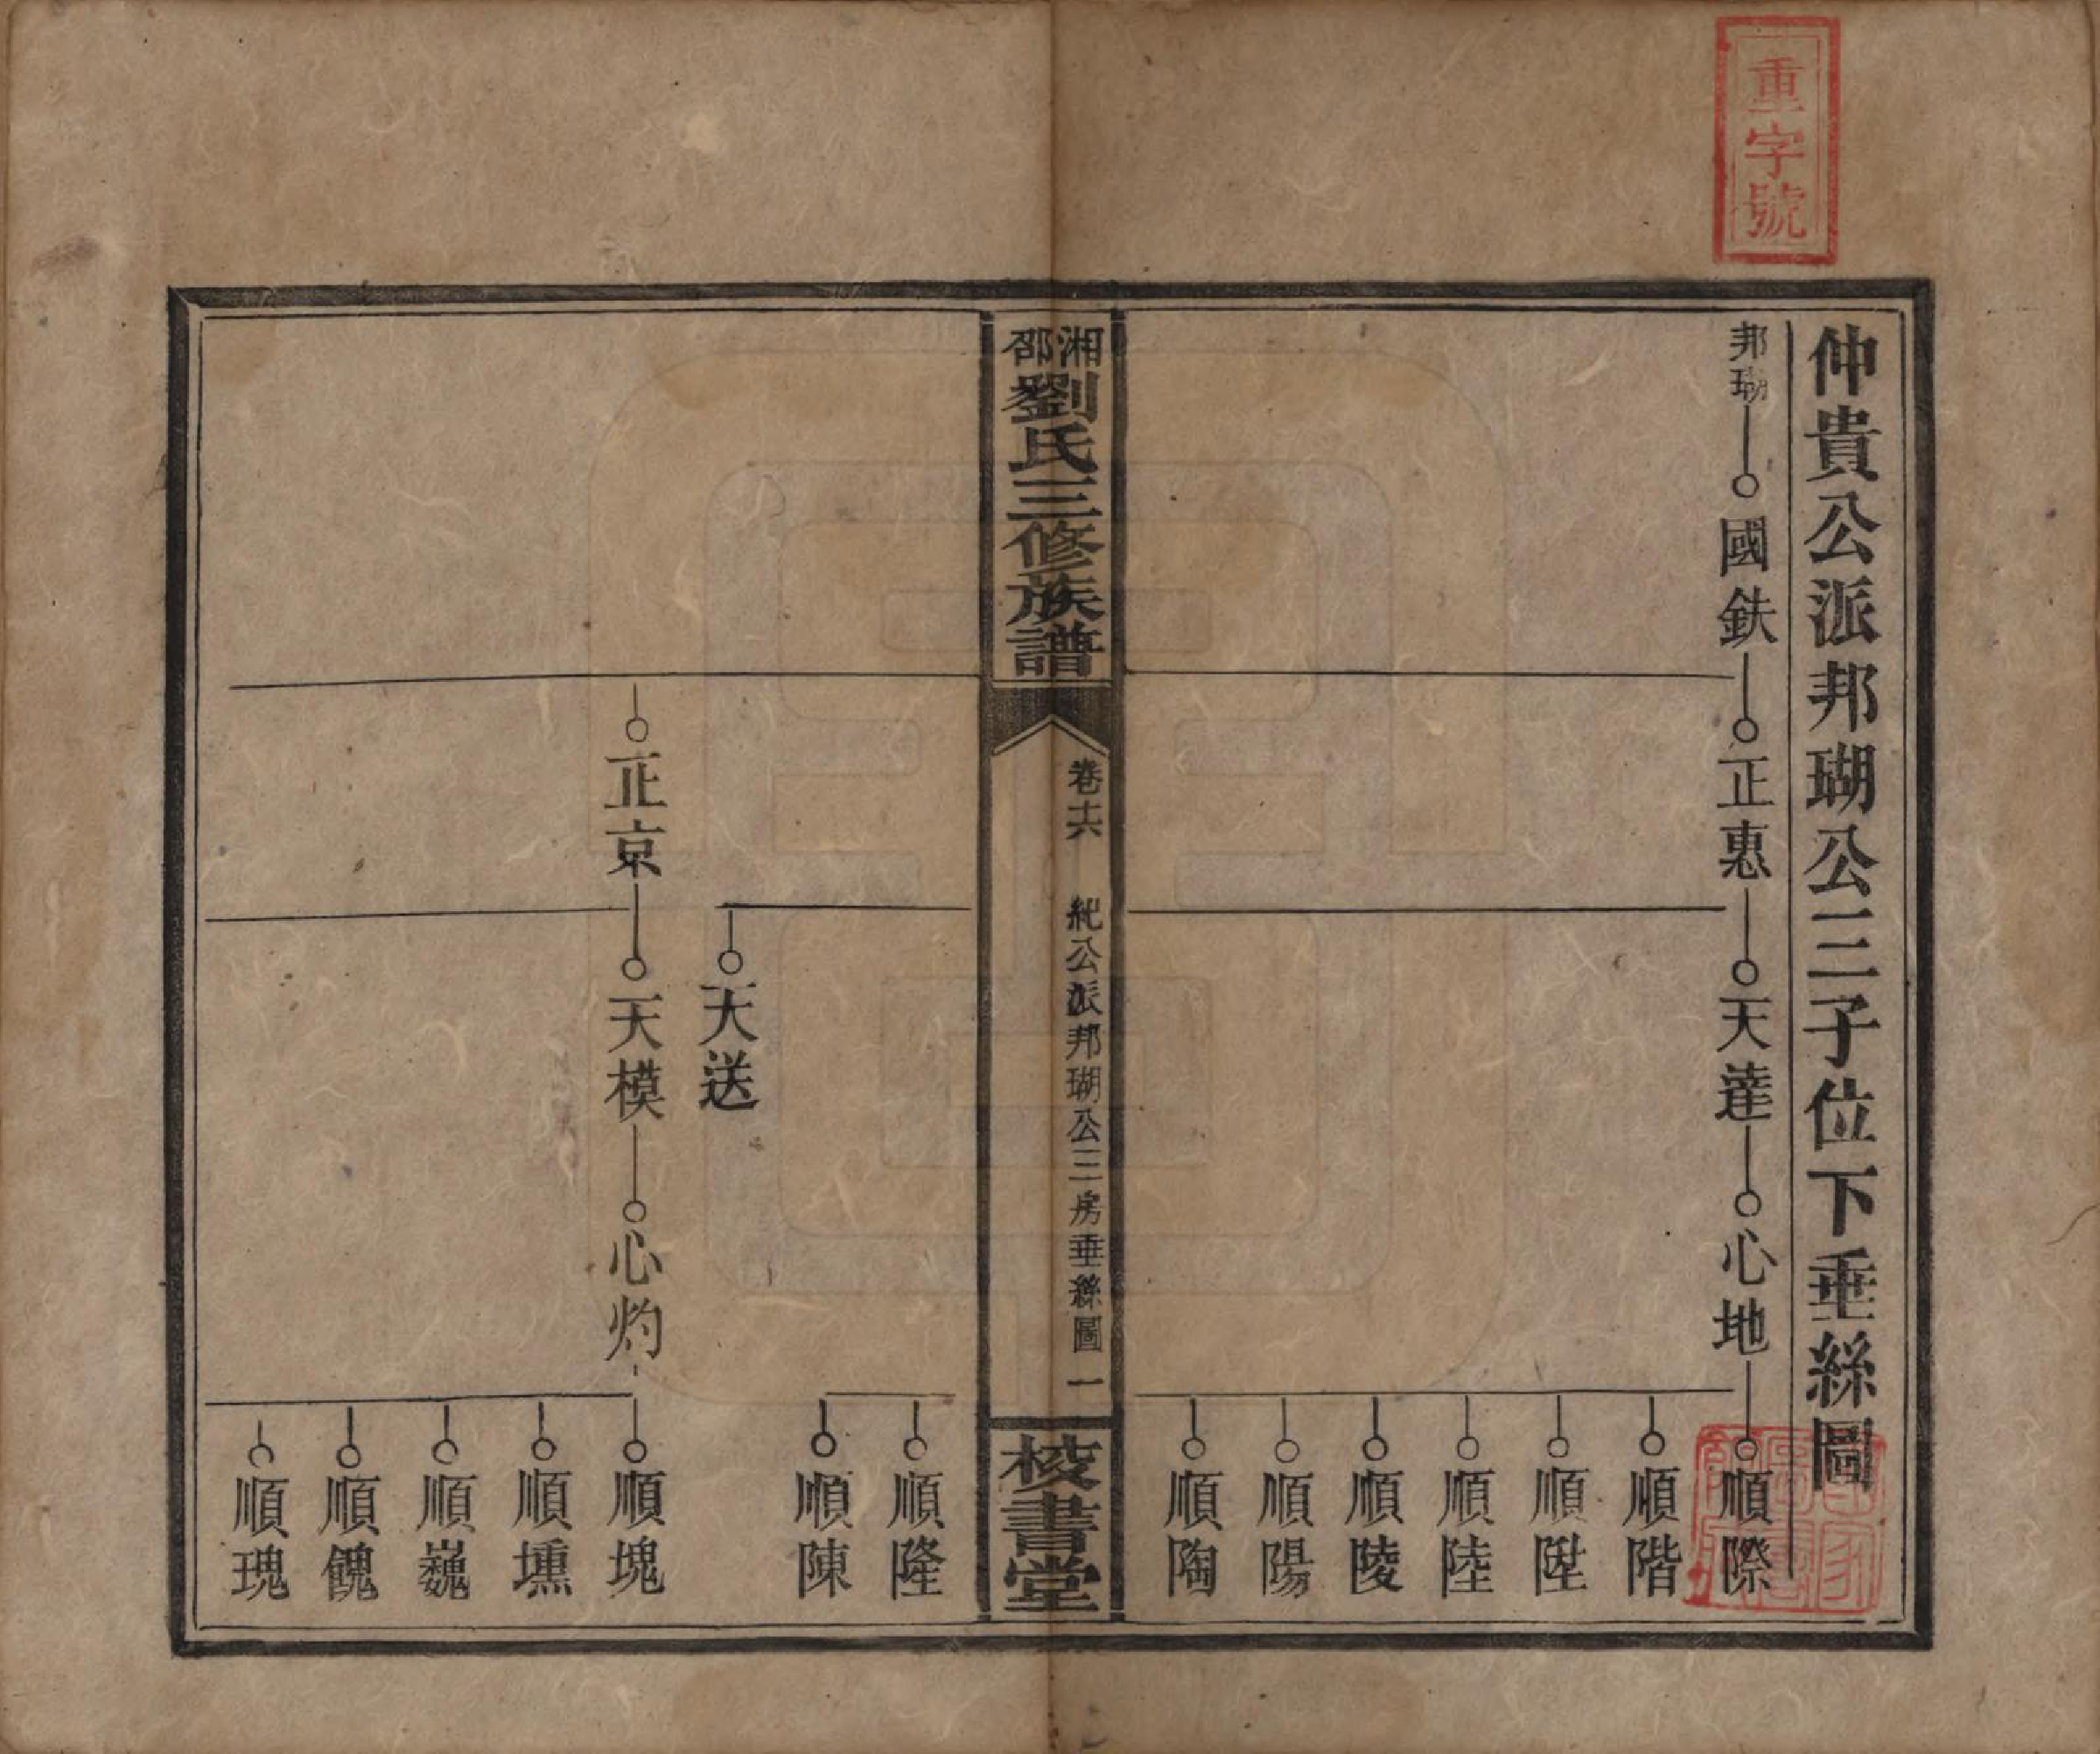 重字號
仲貴公派邦瑚公三子位下垂絲圖
邦瑚 國鈇 正惠 天達 心地 順際
順階
順陞
順陸
順陵
順陽
順陶
湘邵劉氏三修族譜
卷十六 紀公派邦瑚公三房垂絲圖 一
校書堂
順隆
順陳
天送
正京 天模 心灼 順塊
順壎
順巍
順餽
順瑰